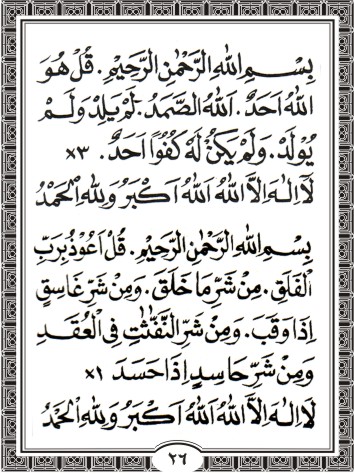 بِسْمِ اللهِ الرَّحْمٰنِ الرَّحِيْمِ. قُلْ هُوَ
اللهُ اَحَدٌ. اَللهُ الصَّمَدُ. لَمْ يَلِدْ وَلَمْ
يُوْلَدْ. وَلَمْ يَكُنْ لَهُ كُفُوًا اَحَدٌ. ×٣
لَا اِلٰهَ اِلَّا اللهُ اَللهُ اَكْبَرُ وَلِلهِ الْحَمْدُ
بِسْمِ اللهِ الرَّحْمٰنِ الرَّحِيْمِ. قُلْ اَعُوْذُ بِرَبِّ
الْفَلَقِ. مِنْ شَرِّ مَا خَلَقَ. وَمِنْ شَرِّ غَاسِقٍ
اِذَا وَقَبَ. وَمِنْ شَرِّ النَّفّٰثٰتِ فِى الْعُقَدِ
وَمِنْ شَرِّ حَاسِدٍ اِذَا حَسَدَ ×١
لَا اِلٰهَ اِلَّا اللهُ اَللهُ اَكْبَرُ وَلِلهِ الْحَمْدُ
٢٦